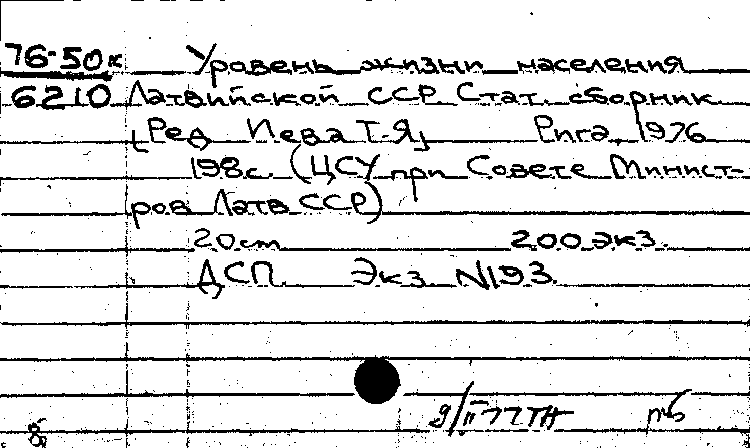 76-50к Уровень жизни населения
6210 Латвийской ССР Стат. сборник
[Ред Иева Т-Я] Рига, 1976
198с. (ЦСУ при Совете Минист-
ров Латв ССР)
20 см 200 экз.
ДСП. Экз N193.
9/II 77 ТН пб